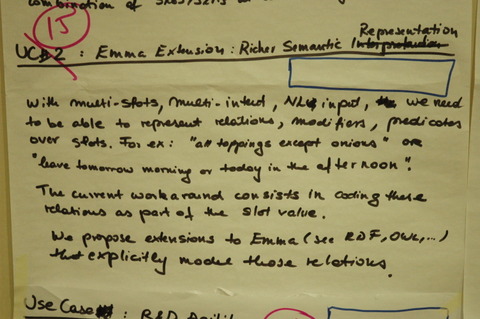 combination of
15
UC#2 : Emma Extension : Richer Semantic Interpretation Representation
With multi-slots, multi-intent, NL input, we need
to be able to represent relations, modifiers, predicates
over slots. For ex: "all toppings except onions" or
"leave tomorrow morning or today in the afternoon".
The current workaround consists in coding these
relations as part of the slot value.
We propose extensions to Emma (see RDF, OWL, ...)
that explicitly model those relations.
Use Case : R&D